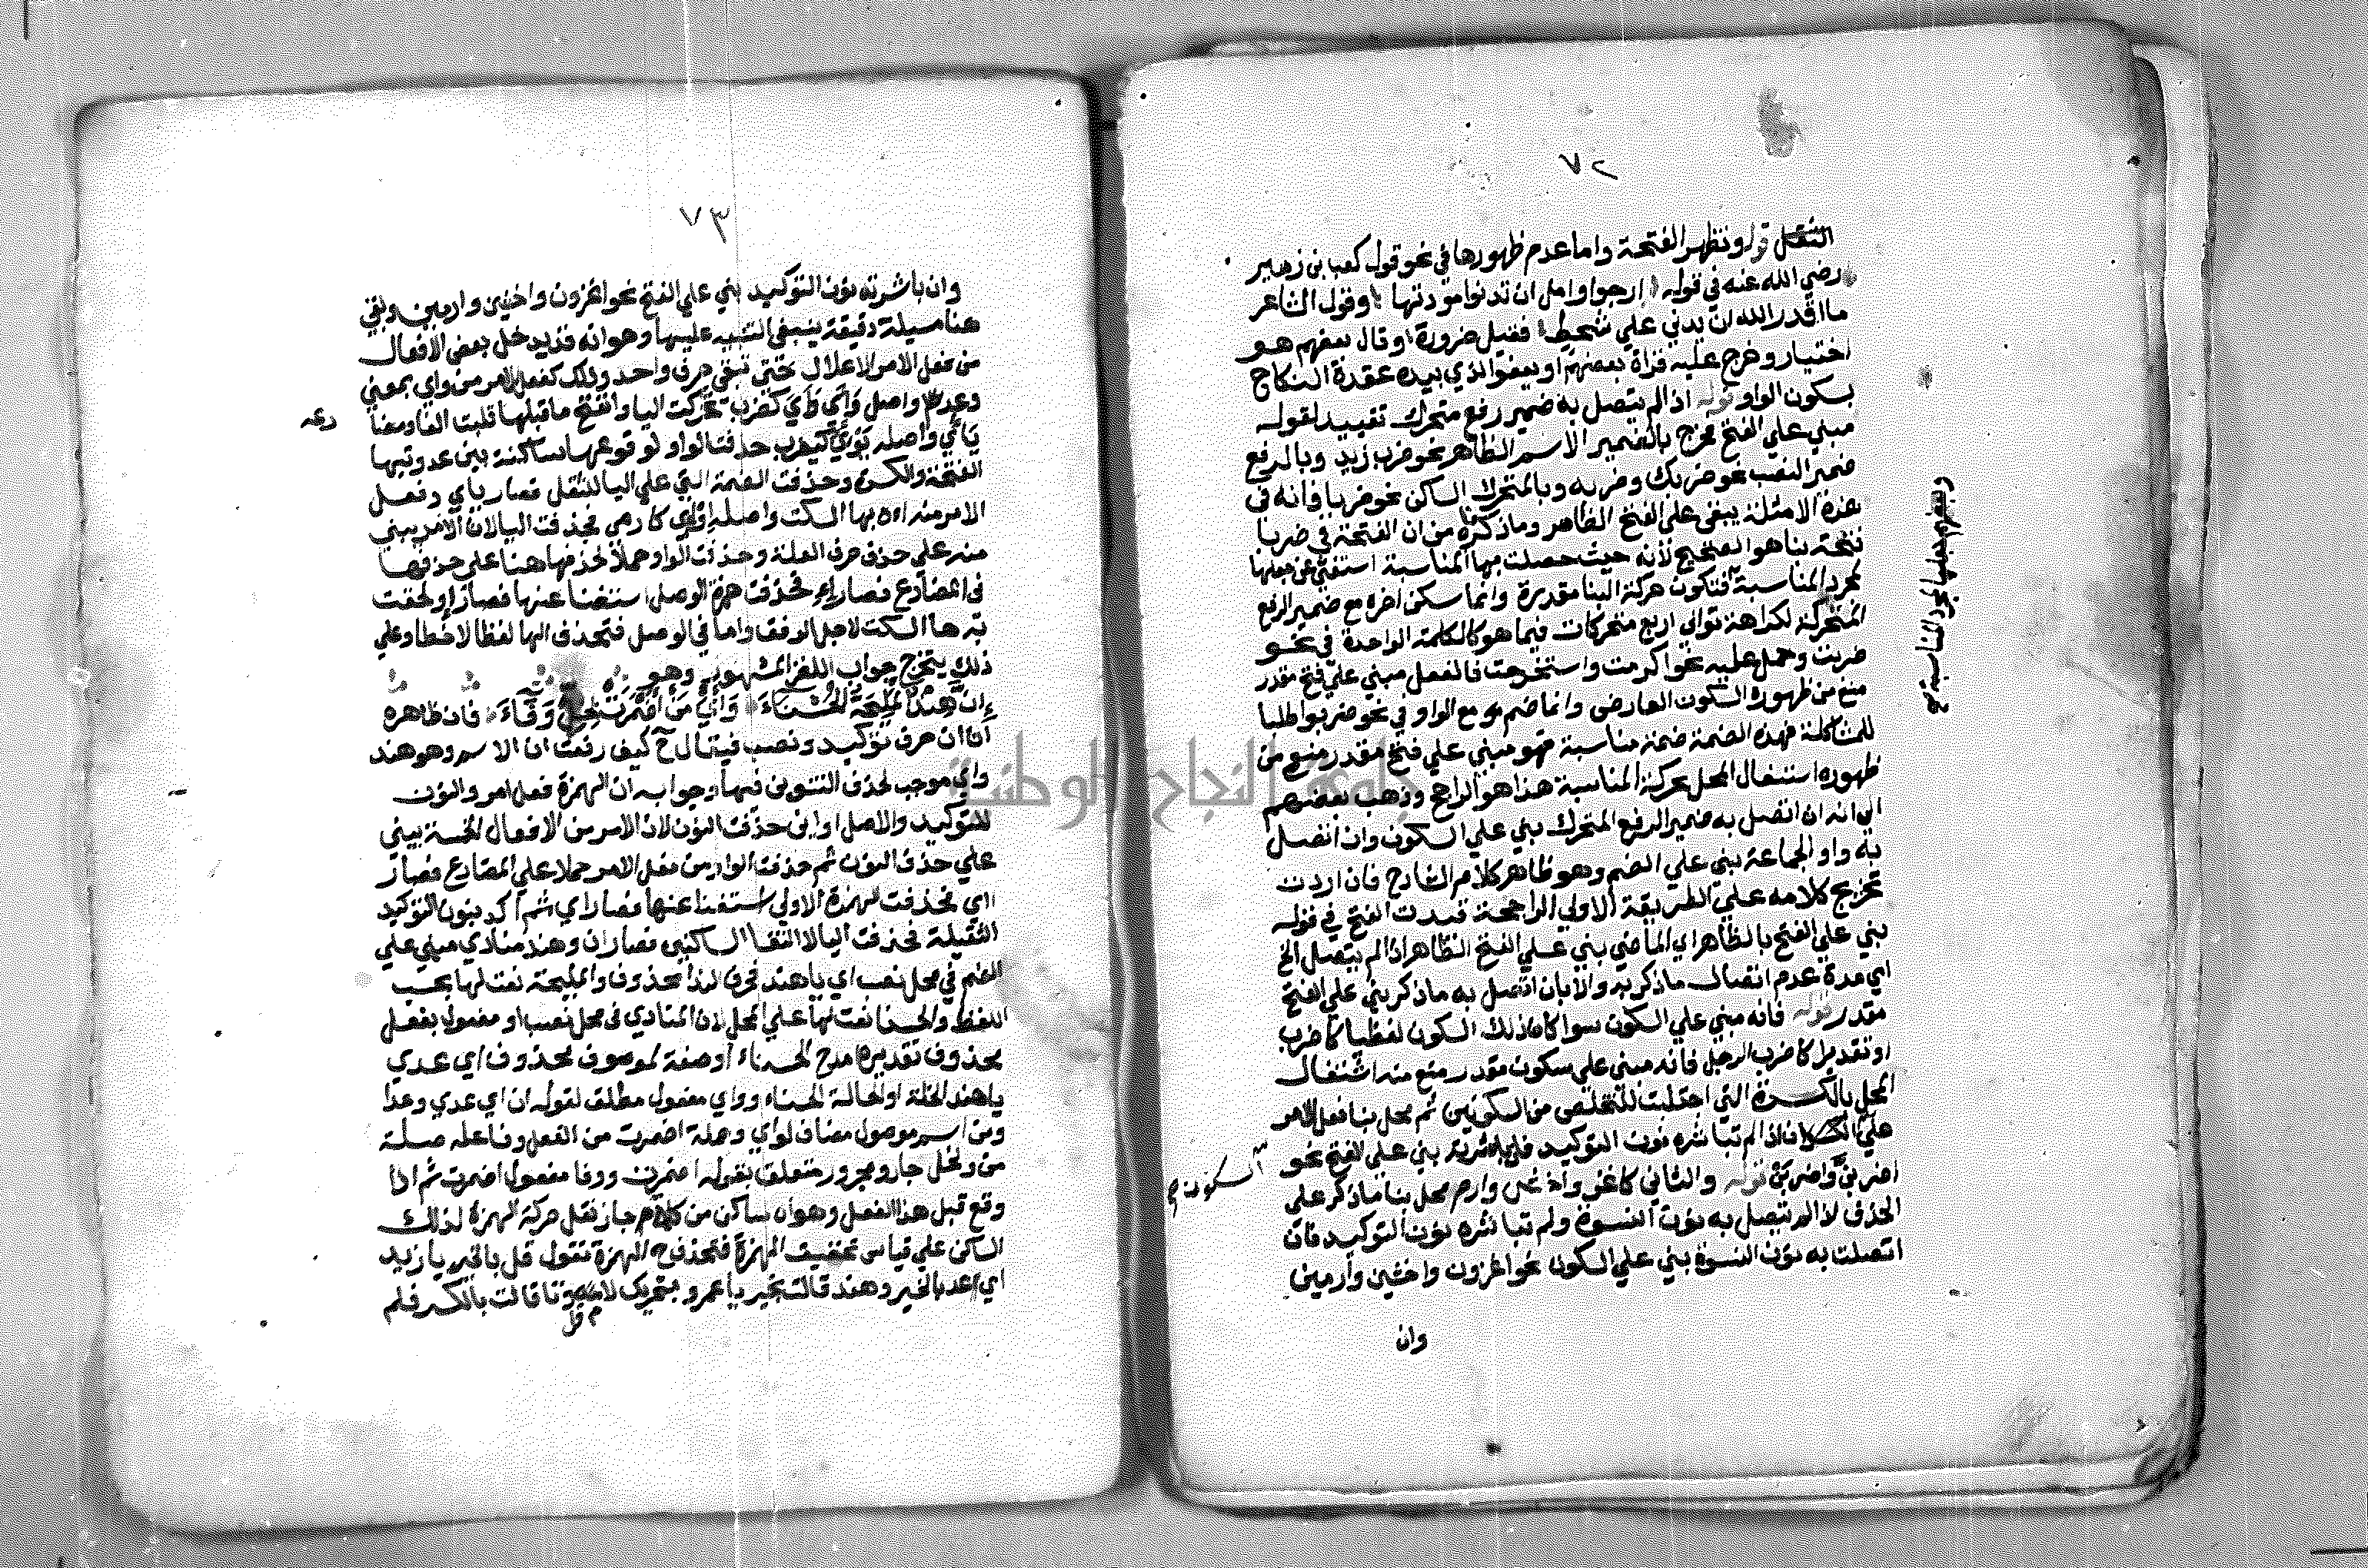 ٧٢
الثقل قوله وتظهر الفتحة واما عدم ظهورها في نحو قول كعب بن زهير
رضي الله عنه في قوله ارجوا وامل ان تدنوا مودتها وقول الشاعر
ما اقدر الله ان يدني علي شحط فقيل ضرورة وقال بعضهم هو
اختيار وخرج عليه قراة بعضهم او يعفوا الذي بيده عقدة النكاح
بسكون الواو قوله اذا لم يتصل به ضمير رفع متحرك تقييد لقوله
مبني علي الفتح فخرج بالضمير الاسم الظاهر نحو ضرب زيد وبالرفع
ضمير النصب نحو ضربك وضربه وبالمتحرك الساكن نحو ضربا فانه في
هذه الامثلة يبقي علي الفتح الظاهر وما ذكره من ان الفتحة في ضربا
فتحة بنا هو الصحيح لانه حيث حصلت بها المناسبة استغني عن جعلها
لمجرد المناسبة فتكون حركة البنا مقدرة وانما سكن اخره مع ضمير الرفع
المتحرك لكراهة توالي اربع متحركات فيما هو كالكلمة الواحدة في نحو
ضربت وحمل عليه نحو اكرمت واستخرجت فالفعل مبني علي فتح مقدر
منع من ظهوره السكون العارض وانما ضم مع الواو في نحو ضربوا طلبا
للمشاكلة فهذه الضمة ضمة مناسبة فهو مبني علي فتح مقدر منع من
ظهوره اشتغال المحل بحركة المناسبة هذا هو الراجح وذهب بعضهم
الي انه ان اتصل به ضمير الرفع المتحرك بني علي السكون وان اتصل
به واو الجماعة بني علي الضم وهو ظاهر كلام الشارح فان اردت
تخريج كلامه علي الطريقة الاولي الراجحة قيدت الفتح في قوله
بني علي الفتح بالظاهر اي الماضي بني علي الفتح الظاهر اذا لم يتصل الخ
اي مدة عدم اتصال ما ذكر به والا بان اتصل به ما ذكر بني علي الفتح
مقدر قوله فانه مبني علي السكون سوا كان ذلك السكون لفظيا كاضرب
او تقديرا كاضرب الرجل فانه مبني علي سكون مقدر منع منه اشتغال
المحل بالكسرة التي اجتلبت للتخلص من السكونين ثم محل بنا فعل الامر
علي السكون اذا لم تباشره نون التوكيد فان باشرته بني علي الفتح نحو
اضربن واضربن قوله والثاني كاغز واخش وارم محل بنا ما ذكر علي
الحذف اذا لم تتصل به نون النسوة ولم تباشره نون التوكيد فان
اتصلت به نون النسوة بني علي السكون نحو اغزون واخشين وارمين
وان
وبعضهم جعلها لمجرد المناسبة صح
السكون صح
٧٣
وان باشرته نون التوكيد بني علي الفتح نحو اغزون واخشين وارمين وبقي
هنا مسيلة دقيقة ينبغي التنبيه عليها وهو انه قد يدخل بعض الافعال
من فعل الامر الاعلال حتي تبقي حرف واحد وذلك كفعل الامر من واي بمعني
وعد واصل وأي وأي كضرب تحركت اليا وانفتح ما قبلها قلبت الفا ومضا
يأي واصله يؤي كيضرب حذفت الواو لوقوعها ساكنة بين عدوتيها
الفتحة والكسرة وحذفت الضمة التي علي اليا للثقل فصار يأي وفعل
الامر منه اه بها السكت واصله اؤي كارمي فحذفت اليا لان الامر يبني
منه علي حذف حرف العلة وحذفت الواو حملا لحذفها هنا علي حذفها
في المضارع فصار إء فحذفت همزة الوصل استغنا عنها فصار إ ولحقت
به ها السكت لاجل الوقف واما في الوصل فتحذف الها لفظا لا خطا وعلي
ذلك يتخرج جواب اللغز المشهور وهو
إن هند المليحة الحسناء وأي من اضمرت لخل وفاء فان ظاهره
ان ان حرف توكيد ونصب فيقال ح كيف رفعت ان الاسم وهو هند
واي موجب لحذف التنوين فيها وجوابه ان الهمزة فعل امر والنون
للتوكيد والاصل اواين حذفت النون لان الامر من الافعال الخمسة يبني
علي حذف النون ثم حذفت الواو من فعل الامر حملا علي المضارع فصار
ااي فحذفت الهمزة الاولي استغنا عنها فصار اي ثم اكد بنون التوكيد
الثقيلة فحذفت اليا لالتقا الساكنين فصار ان وهند منادي مبني علي
الضم في محل نصب اي يا هند فحرف الندا محذوف والمليحة نعت لها بحسب
اللفظ والحسنا نعت لها علي المحل لان المنادي في محل نصب او مفعول بفعل
محذوف تقديره امدح الحسناء او صفة لموصوف محذوف اي عدي
يا هند الخلة او الحالة الحسناء وواي مفعول مطلق لقوله ان اي عدي وعدا
ومن اسم موصول مضاف لواي وجملة اضمرت من الفعل وفاعله صلة
من ولخل جار ومجرور متعلق بقوله اضمرت ووفا مفعول اضمرت ثم اذا
وقع قبل هذا الفعل وهو ان ساكن من كلام جاز نقل حركة الهمزة لذلك
الساكن علي قياس تخفيف الهمزة فتحذف الهمزة فتقول قل بالخير يا زيد
اي عد بالخير وهند قالت بخير يا عمرو بتحريك لام قل وتا قالت بالكسر فلم
وعد